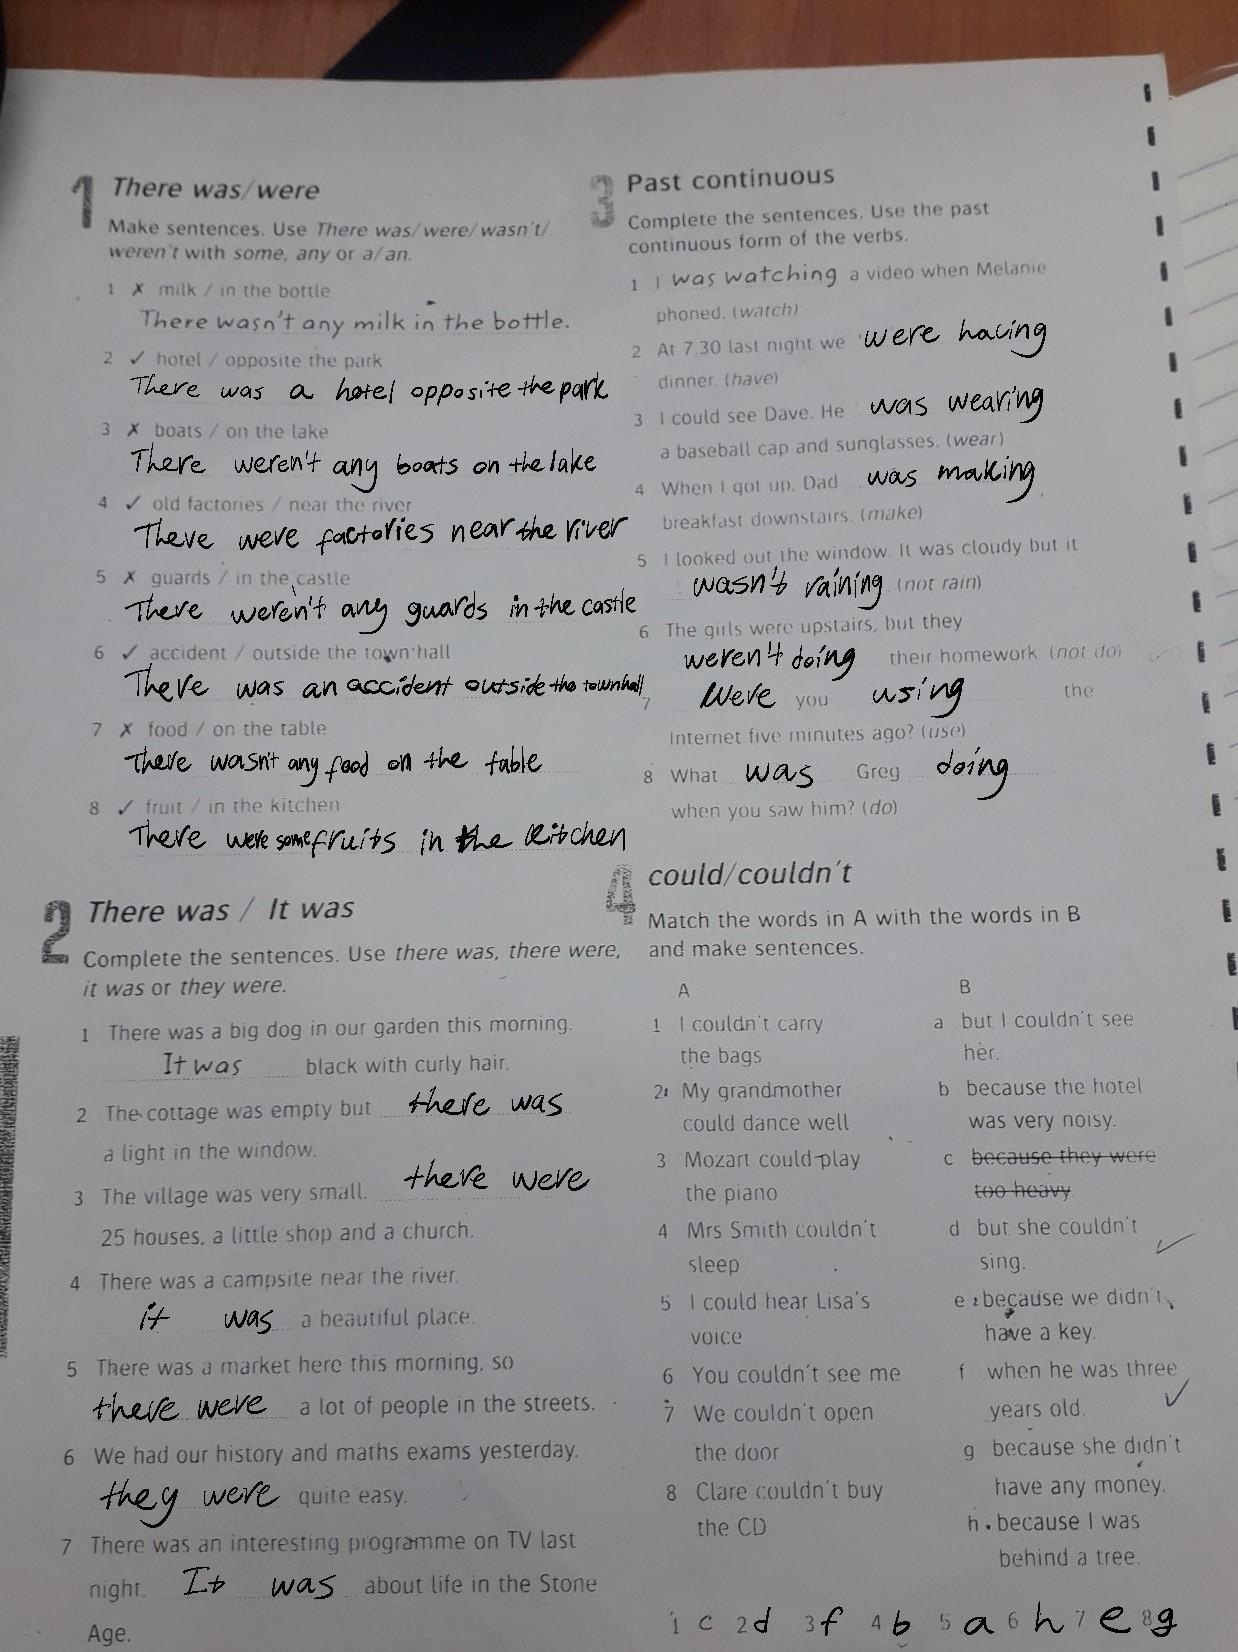 1 There was/were
Make sentences. Use There was/were/wasn't/
weren't with some, any or a/an.
1 ✗ milk / in the bottle
There wasn't any milk in the bottle.
2 ✓ hotel / opposite the park
There was a hotel opposite the park
3 ✗ boats / on the lake
There weren't any boats on the lake
4 ✓ old factories / near the river
There were factories near the river
5 ✗ guards / in the castle
There weren't any guards in the castle
6 ✓ accident / outside the town hall
There was an accident outside the townhall
7 ✗ food / on the table
There wasn't any food on the table
8 ✓ fruit / in the kitchen
There were some fruits in the kitchen
2 There was / It was
Complete the sentences. Use there was, there were,
it was or they were.
1 There was a big dog in our garden this morning.
It was black with curly hair.
2 The cottage was empty but there was
a light in the window.
3 The village was very small. there were
25 houses, a little shop and a church.
4 There was a campsite near the river.
it was a beautiful place.
5 There was a market here this morning, so
there were a lot of people in the streets.
6 We had our history and maths exams yesterday.
they were quite easy.
7 There was an interesting programme on TV last
night. It was about life in the Stone
Age.
3 Past continuous
Complete the sentences. Use the past
continuous form of the verbs.
1 I was watching a video when Melanie
phoned. (watch)
2 At 7.30 last night we were having
dinner. (have)
3 I could see Dave. He was wearing
a baseball cap and sunglasses. (wear)
4 When I got up, Dad was making
breakfast downstairs. (make)
5 I looked out the window. It was cloudy but it
wasn't raining (not rain)
6 The girls were upstairs, but they
weren't doing their homework (not do)
7 Were you using the
Internet five minutes ago? (use)
8 What was Greg doing
when you saw him? (do)
4 could/couldn't
Match the words in A with the words in B
and make sentences.
A
1 I couldn't carry
the bags
2 My grandmother
could dance well
3 Mozart could play
the piano
4 Mrs Smith couldn't
sleep
5 I could hear Lisa's
voice
6 You couldn't see me
7 We couldn't open
the door
8 Clare couldn't buy
the CD
B
a but I couldn't see
her.
b because the hotel
was very noisy.
c because they were
too heavy.
d but she couldn't
sing.
e because we didn't
have a key.
f when he was three
years old.
g because she didn't
have any money.
h because I was
behind a tree.
1 c 2 d 3 f 4 b 5 a 6 h 7 e 8 g